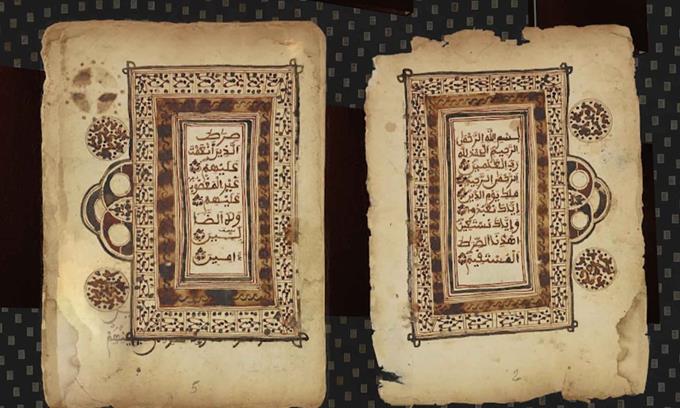 بسم الله الرحمن
الرحيم الحمد لله
رب العلمين
الرحمن الرحيم
ملك يوم الدين
إياك نعبد و
إياك نستعين
اهدنا الصرط
المستقيم
2
صرط
الذين أنعمت
عليهم
غير المغضوب
عليهم
ولا الضا
لين
ءامين
5